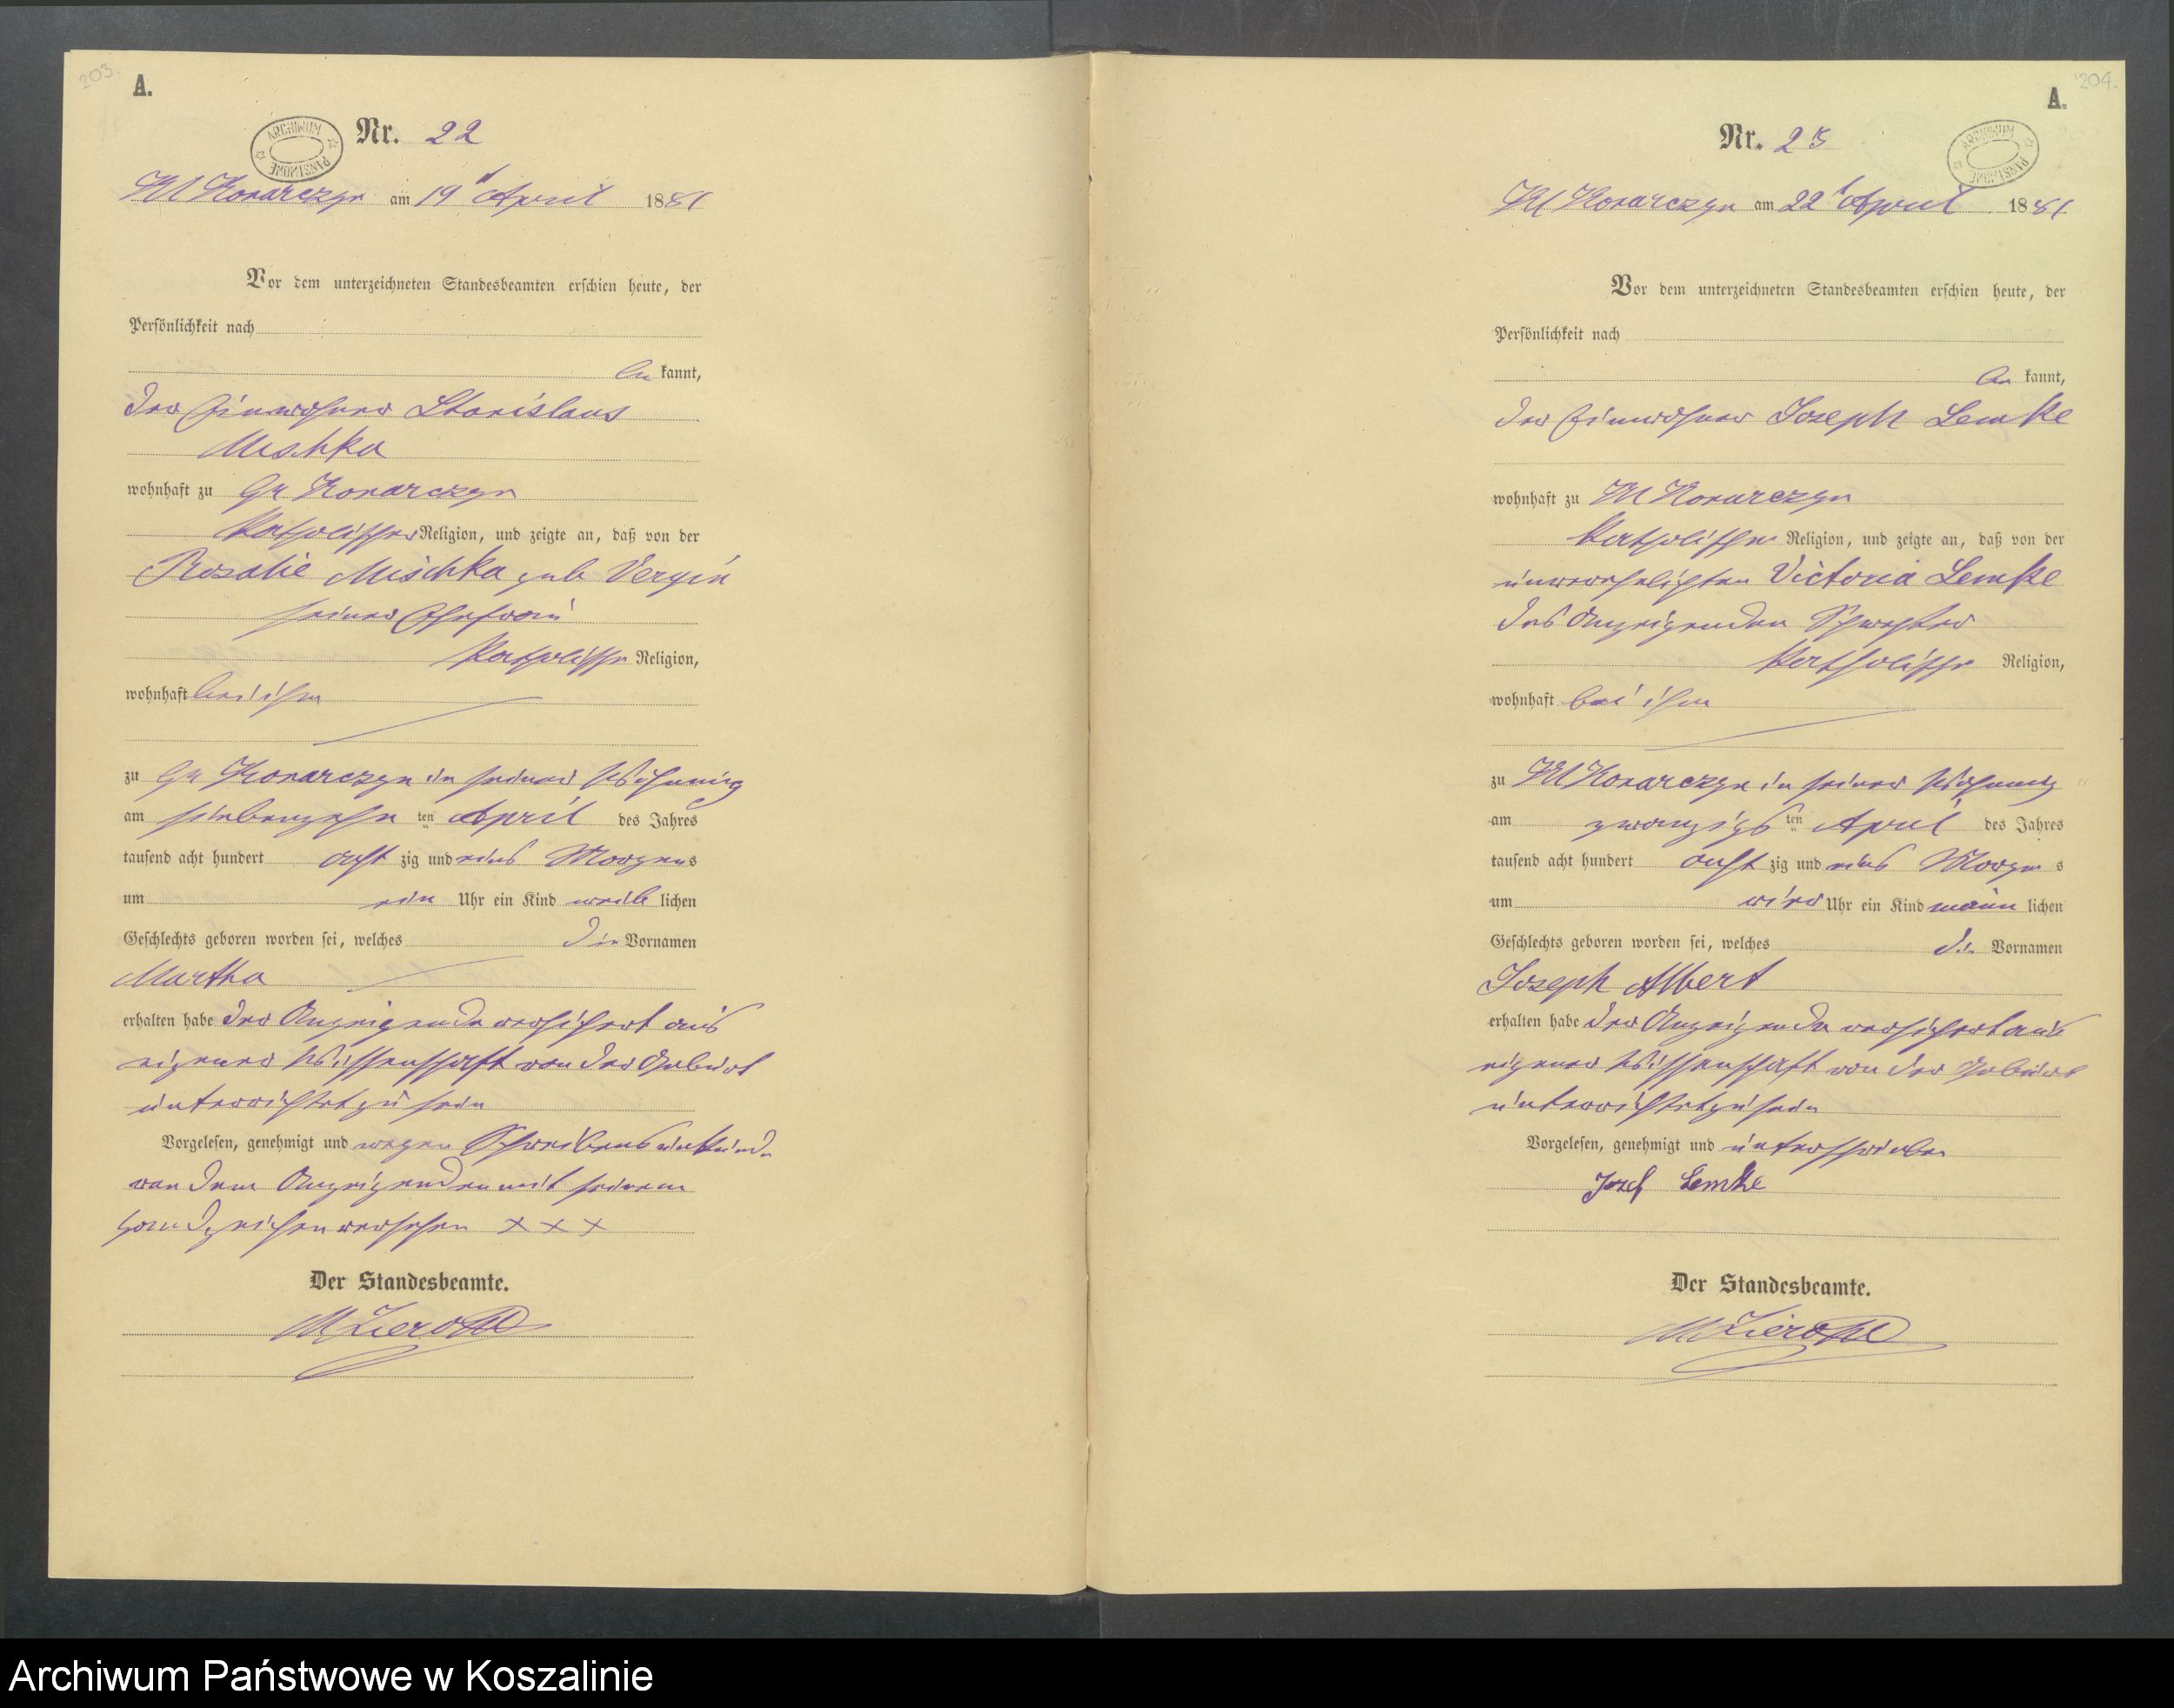 203.
A.
ARCHIWUM PAŃSTWOWE
Nr. 22
Kl Konarczyn am 19t April 1881
Vor dem unterzeichneten Standesbeamten erschien heute, der
Persönlichkeit nach
be kannt,
der Einwohner Stanislaus
Mischka
wohnhaft zu Gr Konarczyn
katholischer Religion, und zeigte an, daß von der
Rosalie Mischka geb Vergin
seiner Ehefrau
katholischer Religion,
wohnhaft bei ihm
zu Gr Konarczyn in seiner Wohnung
am siebenzehn ten April des Jahres
tausend acht hundert acht zig und eins Morgens
um ein Uhr ein Kind weib lichen
Geschlechts geboren worden sei, welches die Vornamen
Martha
erhalten habe der Anzeigende versichert aus
eigener Wissenschaft von der Geburt
unterrichtet zu sein
Vorgelesen, genehmigt und wegen Schreibensunkunde
von dem Anzeigenden mit seinem
Handzeichen versehen × × ×
Der Standesbeamte.
204.
A.
ARCHIWUM PAŃSTWOWE
Nr. 23
Kl Konarczyn am 22t April 1881
Vor dem unterzeichneten Standesbeamten erschien heute, der
Persönlichkeit nach
be kannt,
der Einwohner Joseph Lemke
wohnhaft zu Kl Konarczyn
katholischer Religion, und zeigte an, daß von der
unverehelichten Victoria Lemke
des Anzeigenden Schwester
katholischer Religion,
wohnhaft bei ihm
zu Kl Konarczyn in seiner Wohnung
am zwanzigs ten April des Jahres
tausend acht hundert acht zig und eins Morgen s
um vier Uhr ein Kind männ lichen
Geschlechts geboren worden sei, welches die Vornamen
Joseph Albert
erhalten habe der Anzeigende versichert aus
eigener Wissenschaft von der Geburt
unterrichtet zu sein
Vorgelesen, genehmigt und unterschrieben
Josef Lemke
Der Standesbeamte.
Archiwum Państwowe w Koszalinie